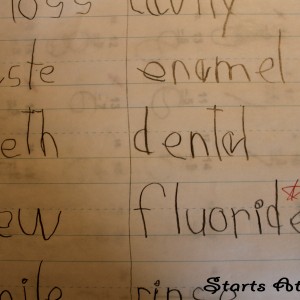 loss cavity
ste enamel
eth dental
ew fluoride
mile rinse
Starts At